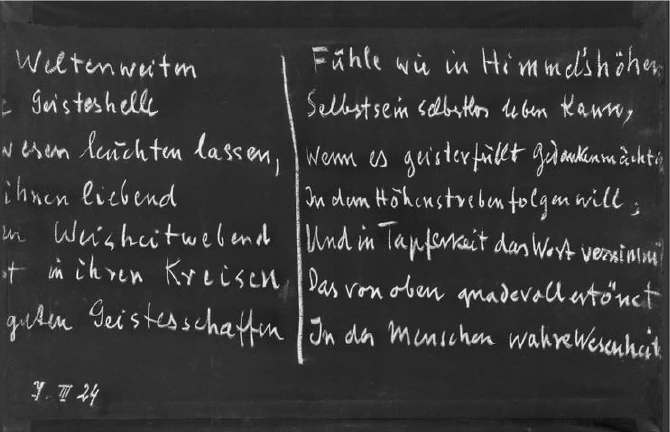 Weltenweiten
Geisteshelle
esen leuchten lassen,
ihnen liebend
Weisheitwebend
t in ihren Kreisen
guten Geistesschaffen
7. III 24
Fühle wie in Himmelshöhen
Selbstsein selbstlos leben kann,
Wenn es geisterfüllt Gedankenmächten
In dem Höhenstreben folgen will;
Und in Tapferkeit das Wort vernimmt
Das von oben gnadevoll ertönet
In der Menschen wahre Wesenheit